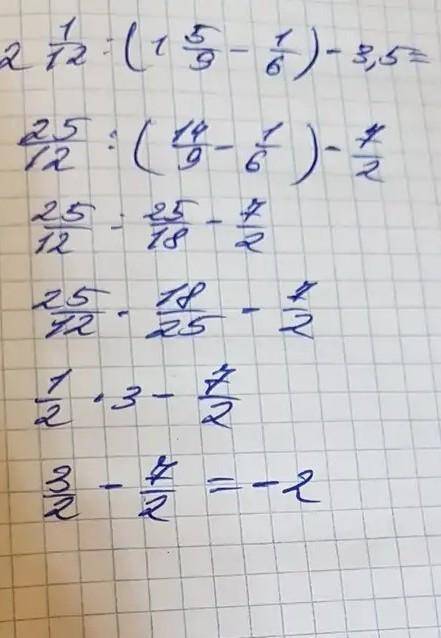 2 1/12 : (1 5/9 - 1/6) - 3,5 =
25/12 : (14/9 - 1/6) - 7/2
25/12 : 25/18 - 7/2
25/12 · 18/25 - 7/2
1/2 · 3 - 7/2
3/2 - 7/2 = -2